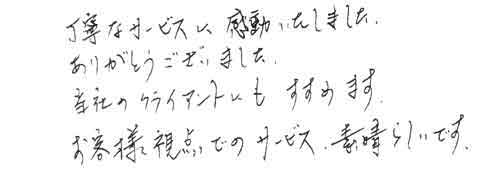 丁寧なサービスに感動いたしました.
ありがとうございました.
当社のクライアントにもすすめます.
お客様視点でのサービス.素晴らしいです.